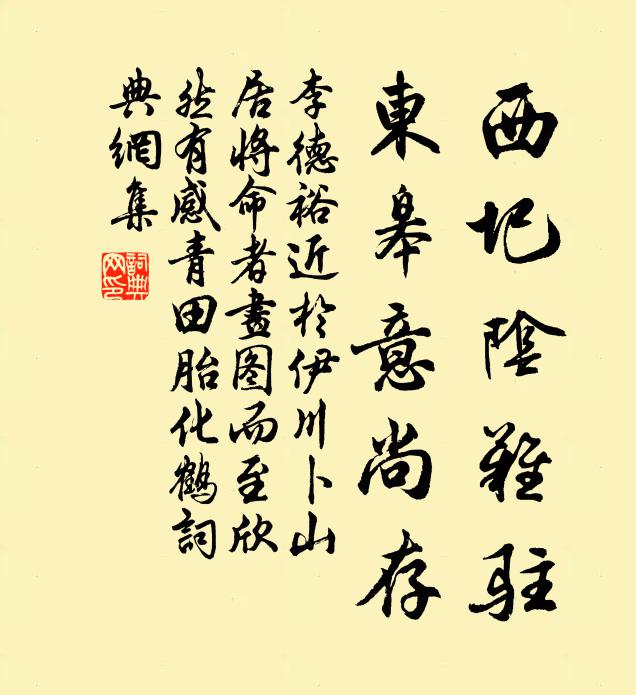 西圯陰難駐
東皋意尚存
李德裕近於伊川卜山
居將命者畫图而至欣
然有感青田胎化鶴詞
典網集
詞典网印